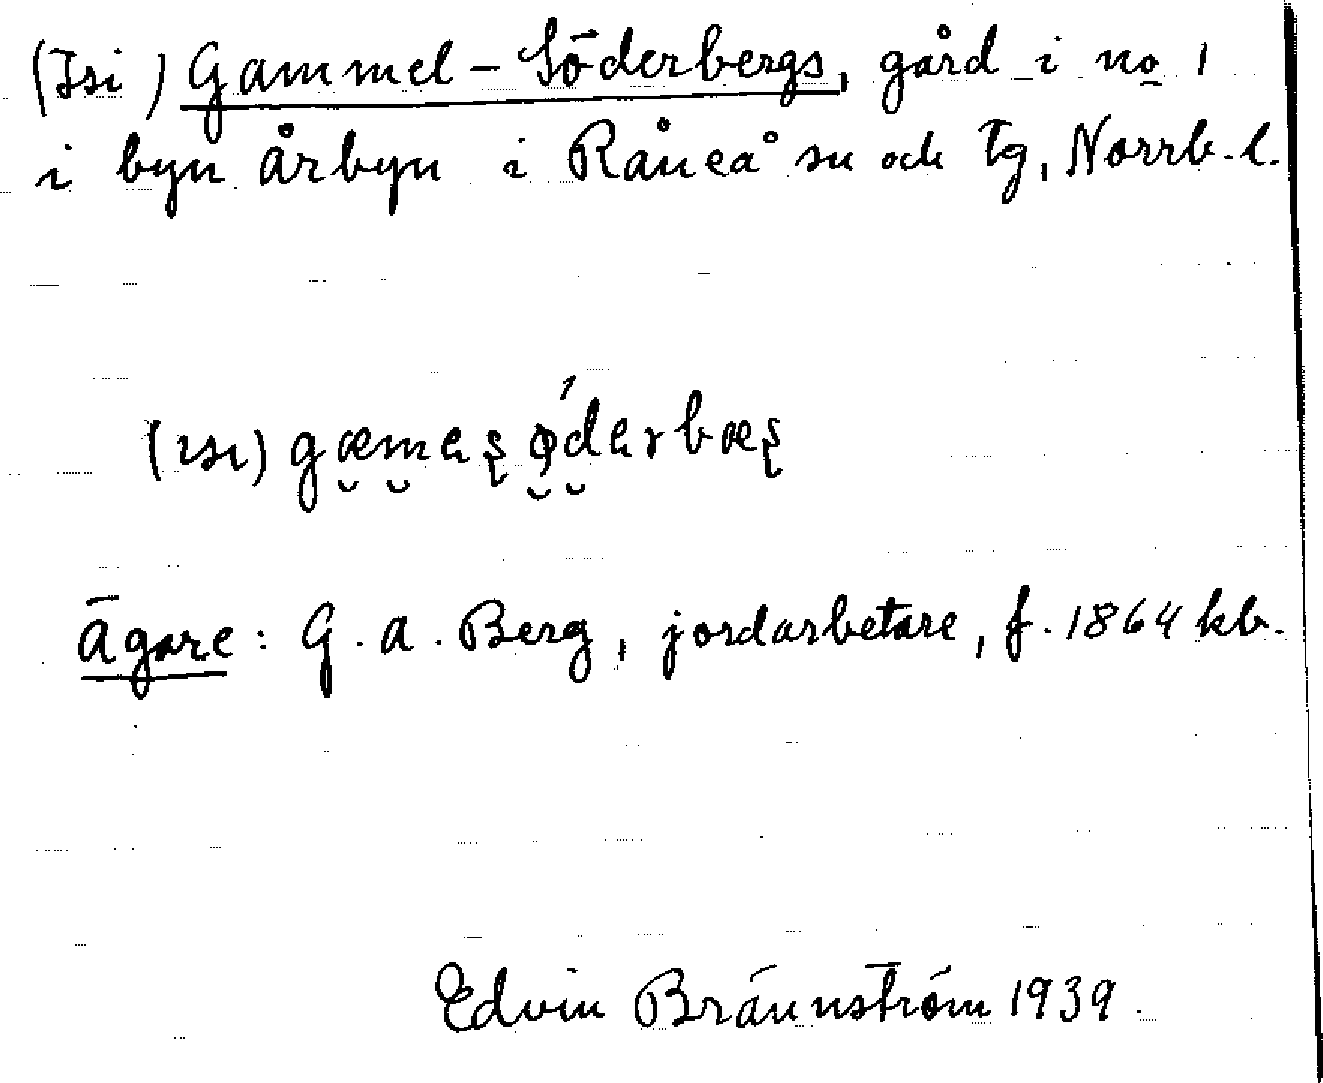 (Isi) Gammel-Söderbergs, gård i no 1
i byn Årbyn i Råneå sn och tg, Norrb.l.
(ısı)
Ägare: G.A. Berg, jordarbetare, f. 1864 kb.
Edvin Brännström 1939.